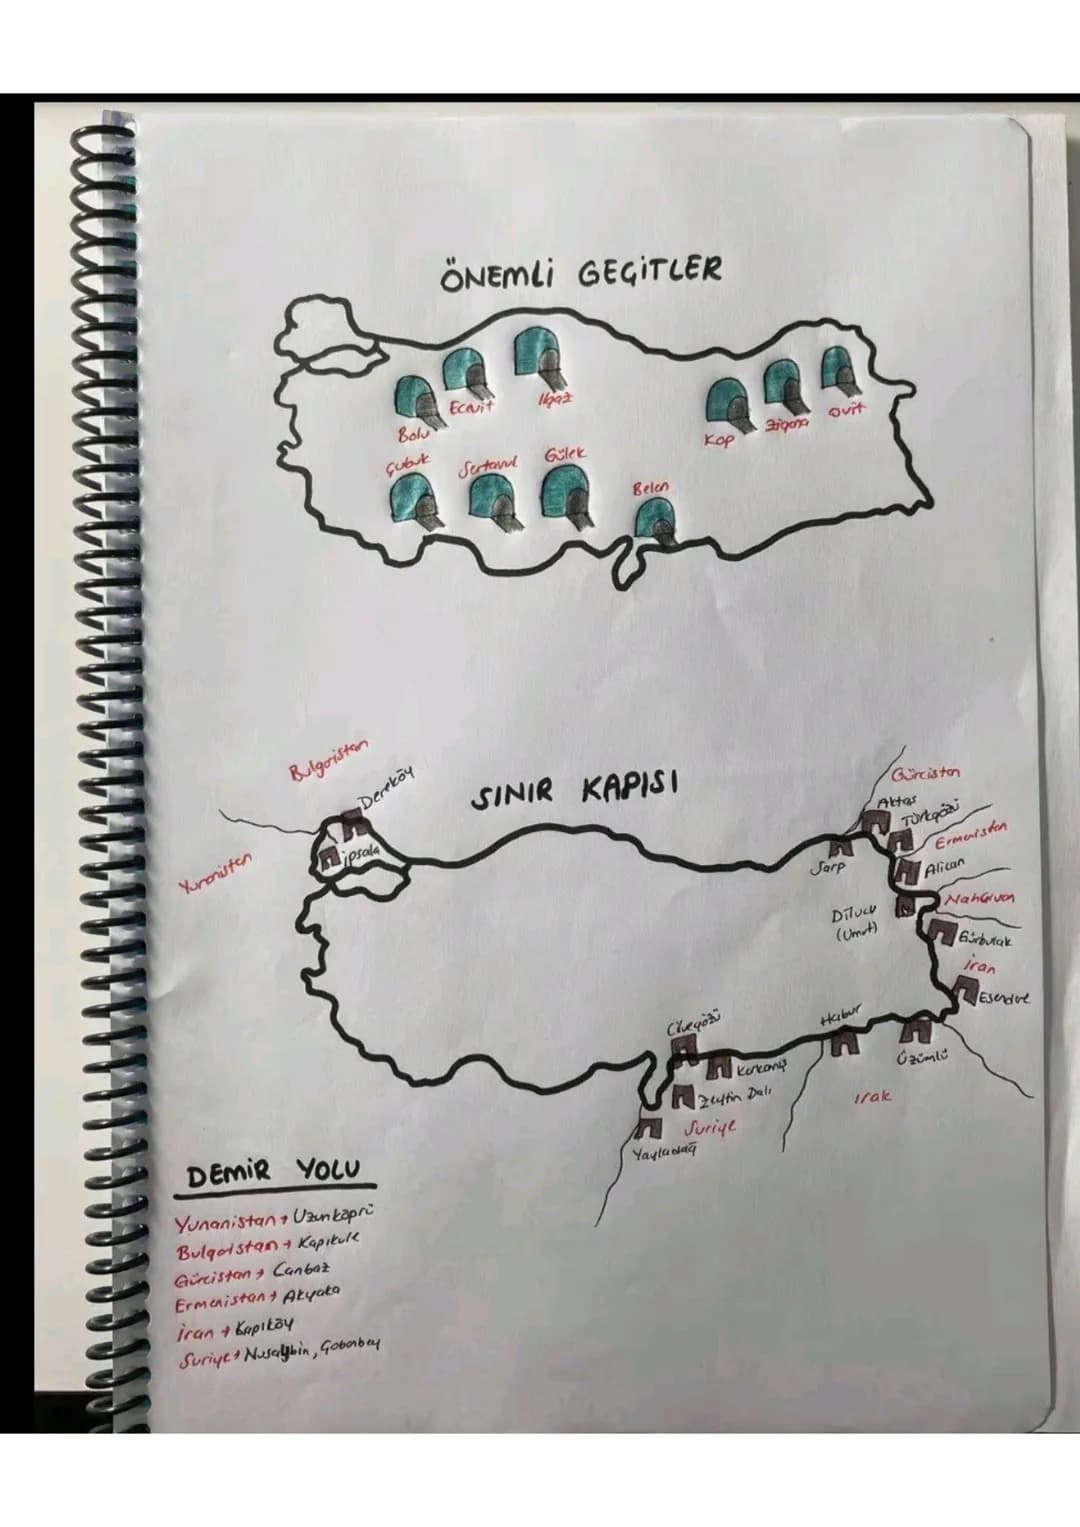 ÖNEMLİ GEÇİTLER
Ecevit
Ilgaz
Bolu
Kop
Zigana
Ovit
Çubuk
Sertavul
Gülek
Belen
SINIR KAPISI
Bulgaristan
Dereköy
Yunanistan
ipsala
Gürcistan
Aktaş
Türkgözü
Ermenistan
Sarp
Alican
Nahcivan
Dilucu
(Umut)
Gürbulak
İran
Esendere
Cilvegözü
Habur
Üzümlü
Karkamış
Zeytin Dalı
Irak
Suriye
Yayladağ
DEMİR YOLU
Yunanistan → Uzunköprü
Bulgaristan → Kapıkule
Gürcistan → Canbaz
Ermenistan → Akyaka
İran → Kapıköy
Suriye → Nusaybin, Çobanbey